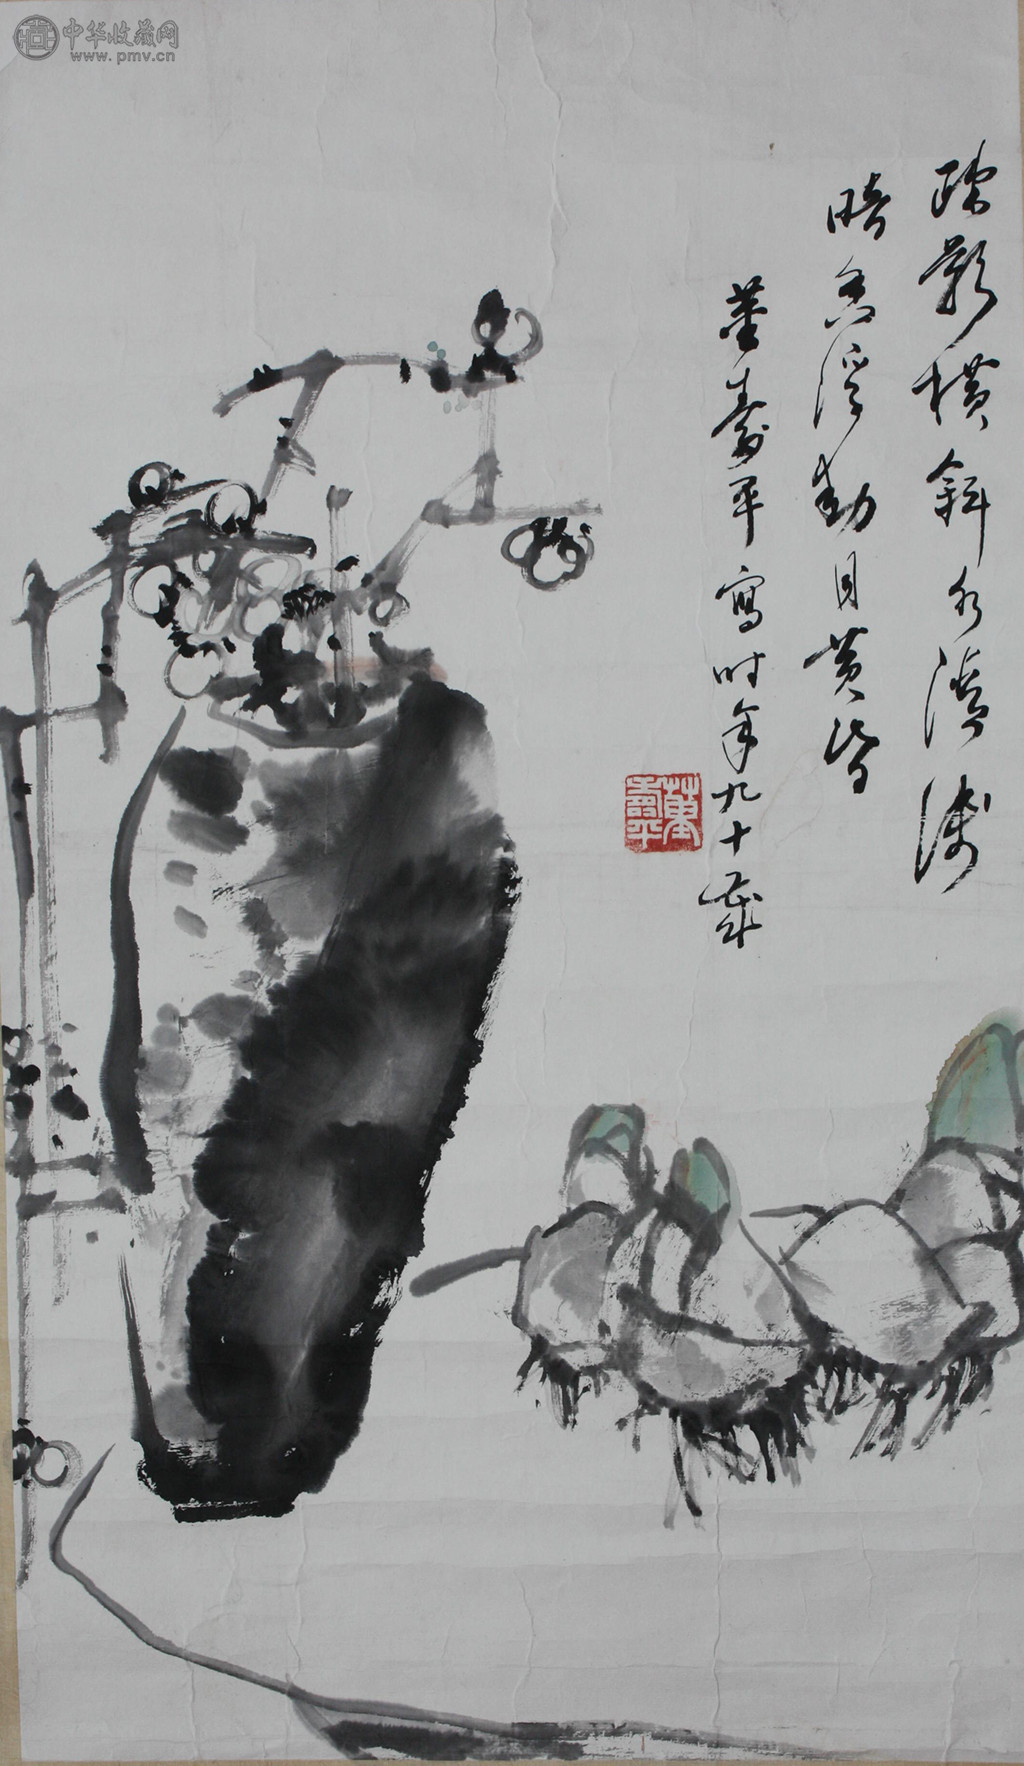 中华收藏网
www.pmv.cn
疎影横斜水清浅
暗香浮動月黄昏
董壽平寫时年九十歲
董壽平